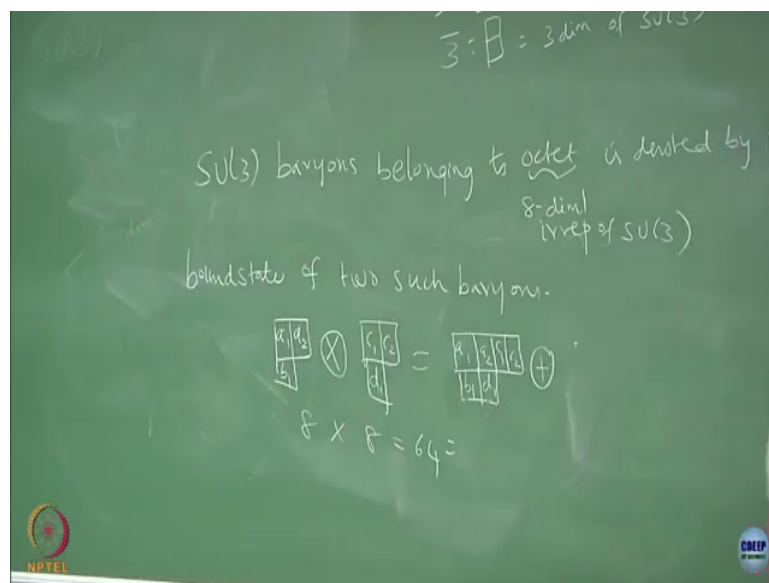 3̄ : = 3 dim of SU(3)
SU(3) baryons belonging to octet is denoted by
8-diml
irrep of SU(3)
boundstate of two such baryons.
a₁ a₂ ⊗ c₁ c₂ = a₁ a₂ c₁ c₂ ⊕
b₁ d₁ b₁ d₁
8 × 8 = 64 =
NPTEL
CDEEP